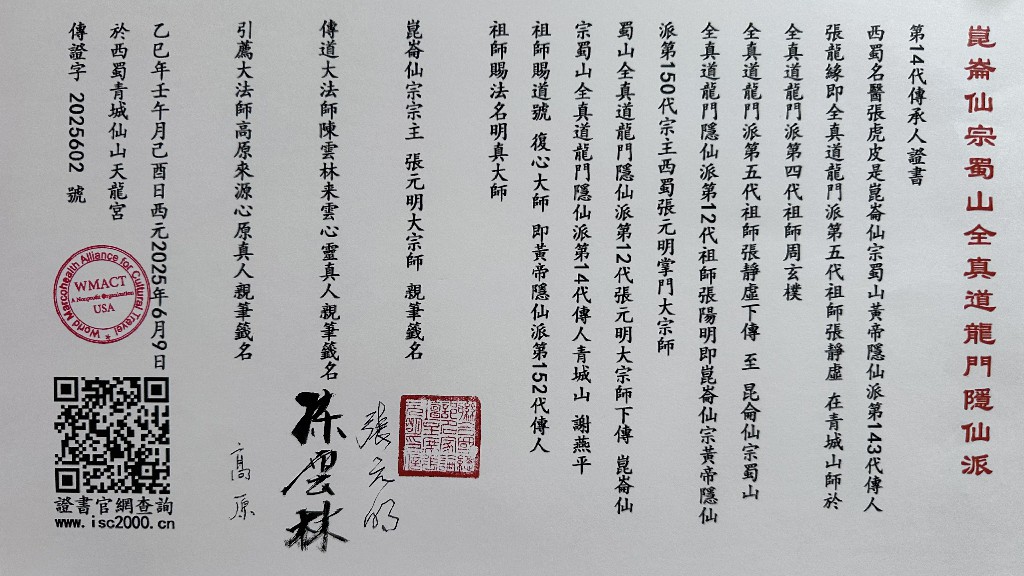 崑崙仙宗蜀山全真道龍門隱仙派
第14代傳承人證書
西蜀名醫張虎皮是崑崙仙宗蜀山黃帝隱仙派第143代傳人
張龍緣即全真道龍門派第五代祖師張靜虛 在青城山師於
全真道龍門派第四代祖師周玄樸
全真道龍門派第五代祖師張靜虛下傳 至 昆侖仙宗蜀山
全真道龍門隱仙派第12代祖師張陽明即崑崙仙宗黃帝隱仙
派第150代宗主西蜀張元明掌門大宗師
蜀山全真道龍門隱仙派第12代張元明大宗師下傳 崑崙仙
宗蜀山全真道龍門隱仙派第14代傳人青城山 謝燕平
祖師賜道號 復心大師 即黃帝隱仙派第152代傳人
祖師賜法名明真大師
崑崙仙宗宗主 張元明大宗師 親筆籤名
張元明
傳道大法師陳雲林来雲心靈真人親筆籤名
陈云林
引薦大法師高原來源心原真人親筆籤名
高原
乙巳年壬午月己酉日西元2025年6月9日
於西蜀青城仙山天龍宮
傳證字 2025602 號
World Marcohealth Alliance for Cultural Travel
WMACT
A Nonprofit Organization
USA
證書官網查詢
www.isc2000.cn